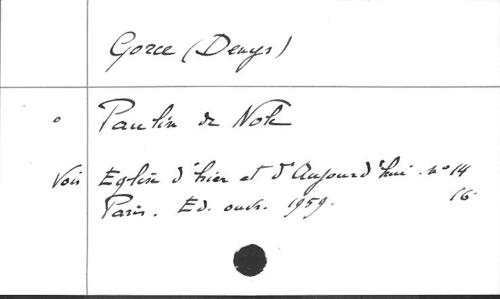 Gorce (Denys)
° Paulin de Nole
Voir Eglise d'hier et d'Aujourd'hui. n° 14
Paris. Ed. ouvr. 1959. 16-